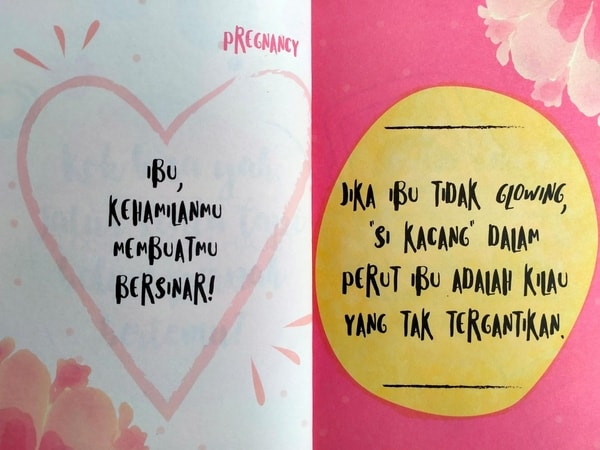 PREGNANCY
IBU,
KEHAMILANMU
MEMBUATMU
BERSINAR!
JIKA IBU TIDAK GLOWING,
"SI KACANG" DALAM
PERUT IBU ADALAH KILAU
YANG TAK TERGANTIKAN.